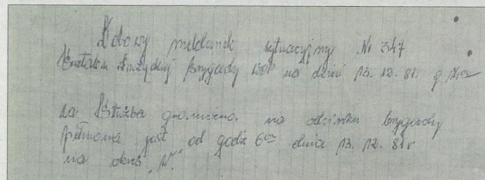 Dobowy meldunek sytuacyjny Nr 347
Brygady WOP na dzień 13. 12. 81. g.
Służba graniczna na odcinku brygady
pełniona jest od godz 6⁰⁰ dnia 13. 12. 81 r
na okres „N".